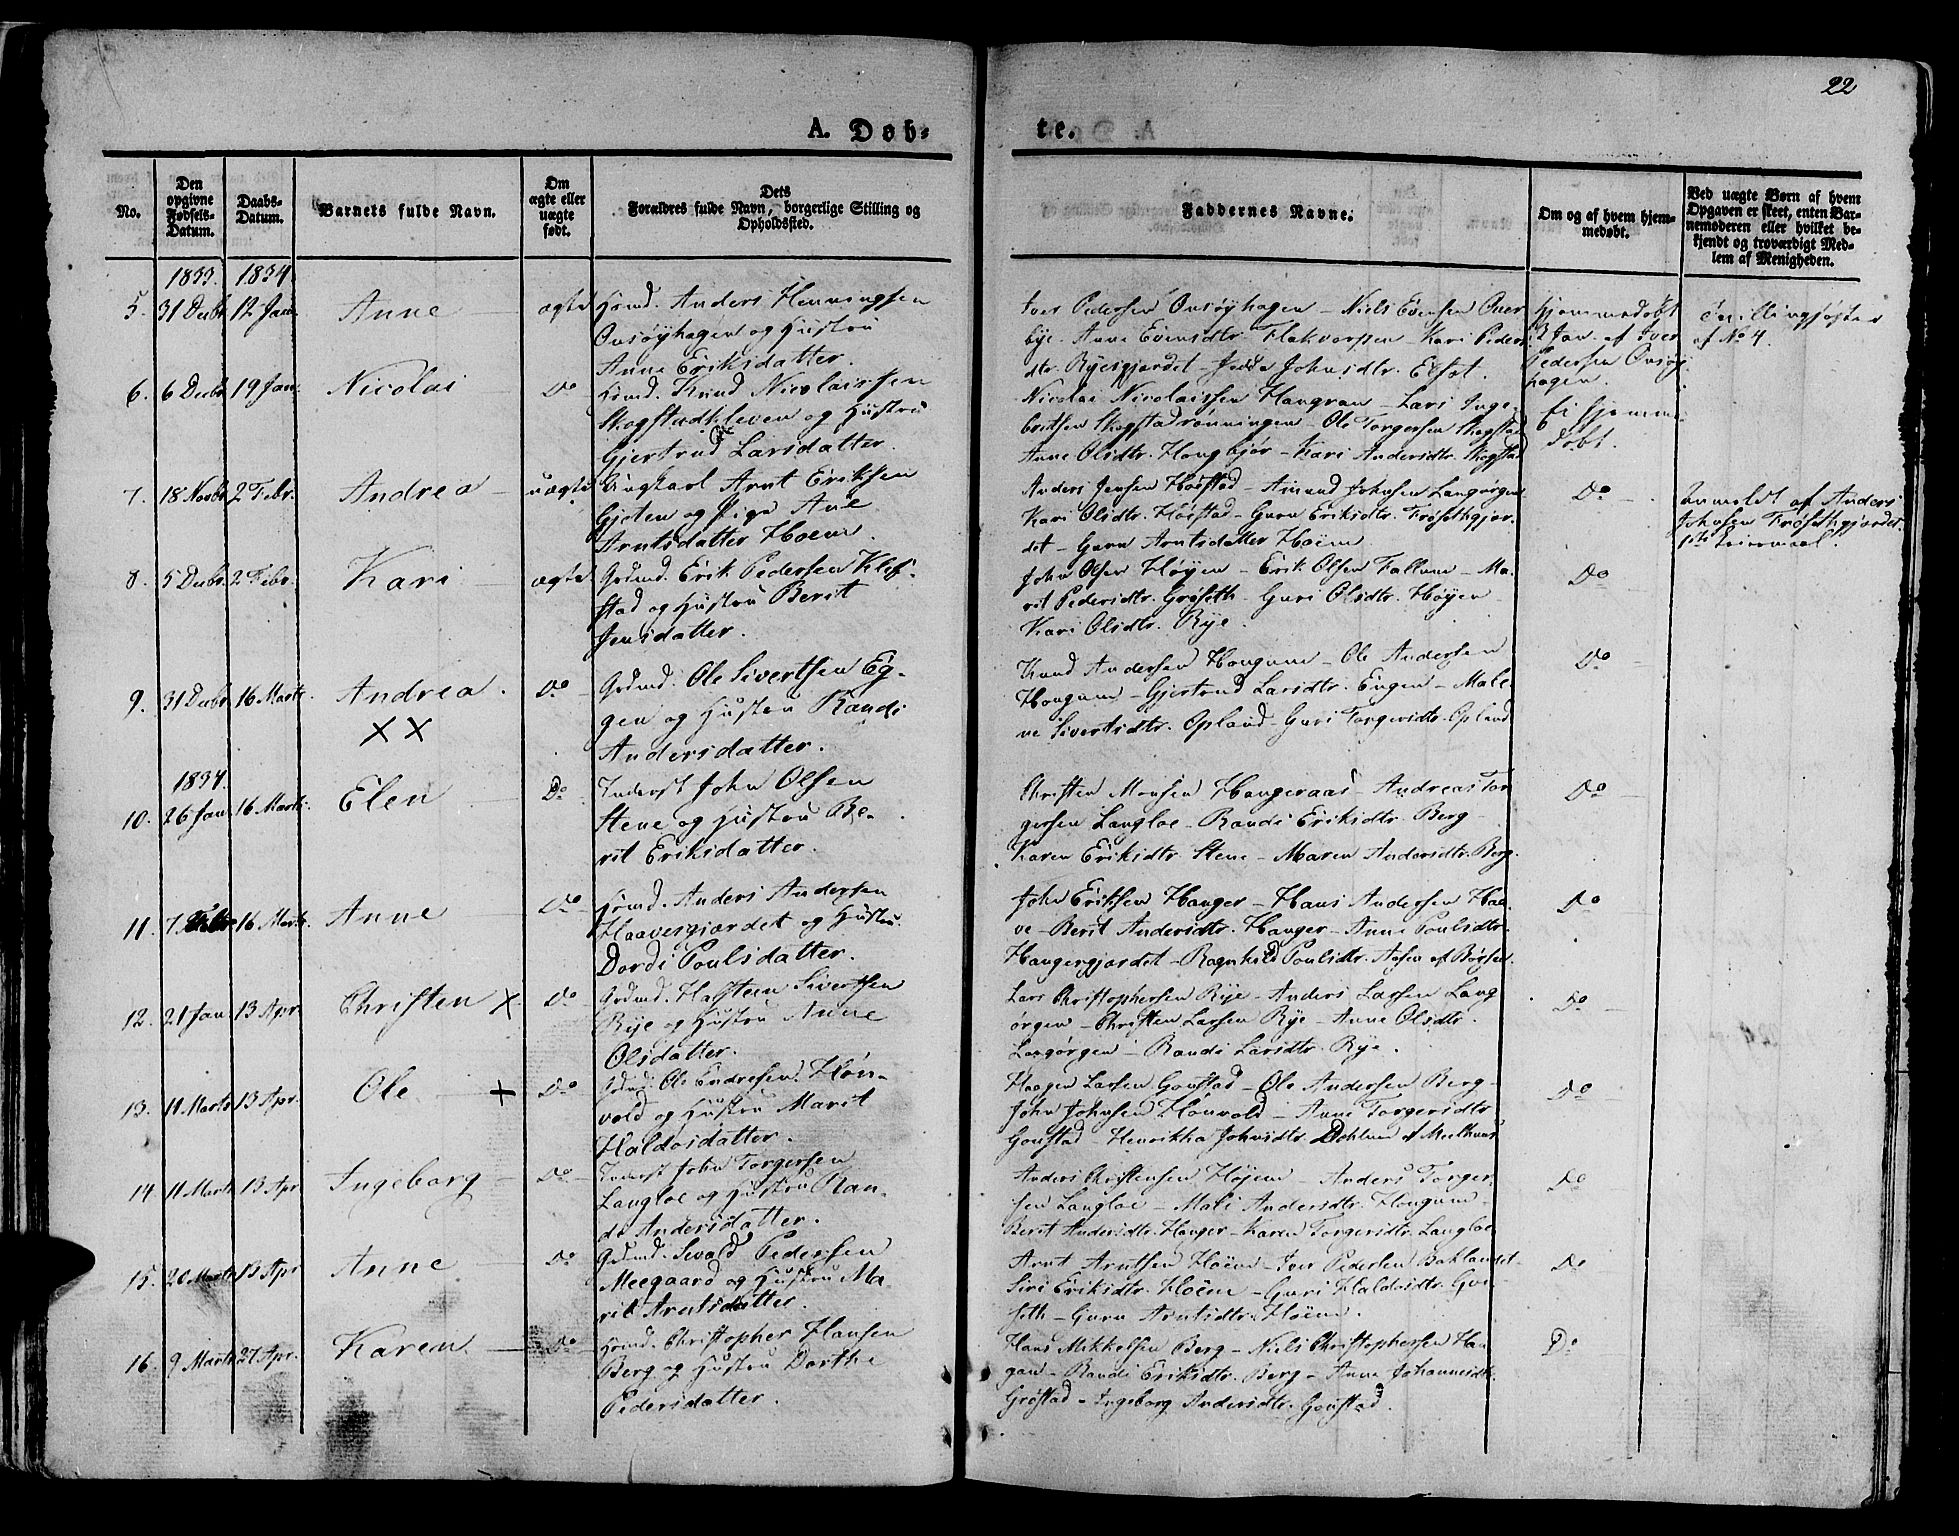 22
A. Døb-
te.
No.
Den opgivne Fødsels-Datum.
Daabs-Datum.
Barnets fulde Navn.
Om ægte eller uægte født.
Dets Forældres fulde Navn, borgerlige Stilling og Opholdsted.
Faddernes Navne.
Om og af hvem hjemmedøbt.
Ved uægte Børn af hvem Opgaven er skeet, enten Barnemoderen eller hvilket bekjendt og troværdigt Medlem af Menigheden.
1833. 1834
5. 31 Decbr. 12 Jan. Anne ægte
Huusmd. Anders Henningsen
Onsøyhagen og Hustru
Anne Eriksdatter.
Iver Pedersen Onsøyhagen – Niels Evensen Over
bye – Anne Evensdtr. Flakkorpen Kari Peders
dtr. Ryesgjærdet – Johnsdtr. Elset.
Hjemmedøbt
3 Jan. af Iver
Pedersen Onsøy
hagen.
Tvillingsøster
af No 4.
6. 6 Decbr. 19 Jan. Nicolai Do
Huusmd. Knud Nicolaissen
Skogstadkleven og Hustru
Gjertrud Larsdatter.
Nicolai Nicolaissen Haugran – Lars Inge-
britsen Skogstadrønningen – Ole Torgersen Skogstad
Anne Olsdtr. Hongbjør – Kari Andersdtr. Skogstad
Ei hjemme
døbt.
7. 18 Novbr. 2 Febr. Andrea uægte
Ungkarl Arnt Eriksen
Gjeten og Pige Ane
Arntsdatter Hoem.
Anders Jensen Hoistad – Amund Johnsen Langørgen
Kari Olsdtr. Hoistad – Guru Eriksdtr. Frøsethgjær-
det – Guru Arntsdatter Hoëm
Do
Anmeldt af Anders
Johnsen Frøsethgjærdet
1ste Leiermaal.
8. 5 Decbr. 2 Febr. Kari ægte
Grdmd. Erik Pedersen Klef-
stad og Hustru Berit
Jensdatter.
John Olsen Høyen – Erik Olsen Fallum – Ma-
rit Pedersdtr. Grøseth – Guri Olsdtr. Høyen
Kari Olsdtr. Rye.
Do
9. 31 Decbr. 16 Marts. Andrea. Do
XX
Grdmd. Ole Sivertsen Eg-
gen og Hustru Randi
Andersdatter.
Knud Andersen Hougum – Ole Andersen
Hougum – Gjertrud Larsdtr. Engen – Male-
ne Sivertsdtr. Opland – Guri Torgersdtr. Opland
Do
1834.
10. 26 Jan. 16 Marts. Elen Do
Inderst John Olsen
Stene og Hustru Be-
rit Eriksdatter.
Christen Monsen Haugeraas – Andreas Tor
gersen Langloe – Randi Eriksdtr. Berg –
Karen Eriksdtr. Stene – Maren Andersdtr. Berg.
Do
11. 7 16 Marts. Anne Do
Huusmd. Anders Andersen
Haavesgjærdet og Hustru
Dordi Poulsdatter.
John Eriksen Hauger – Hans Andersen Haa-
ve – Berit Andersdtr. Hauger – Anne Poulsdtr.
Haugergjærdet – Ragnhild Poulsdtr. Aasen af Børsen.
Do
12. 21 Jan. 13 Apr. Christen X Do
Grdmd. Halsteen Sivertsen
Rye og Hustru Anne
Olsdatter.
Lars Christophersen Rye – Anders Larsen Lang
ørgen – Christen Larsen Rye – Anne Olsdtr.
Langørgen – Randi Larsdtr. Rye.
Do
13. 11 Marts 13 Apr. Ole X Do
Grdmd. Ole Endresen Høn-
vold og Hustru Marit
Haldosdatter.
Haagen Larsen Goustad – Ole Andersen Berg –
John Johnsen Hønvold – Anne Torgersdtr
Goustad – Henrikka Johnsdtr. Dahlum af Meelhuus
Do
14. 11 Marts 13 Apr Ingeborg Do
Inderst John Torgersen
Langloe og Hustru Ran-
di Andersdatter.
Anders Christensen Høiem – Anders Torger
sen Langloe – Mali Andersdtr. Hougum –
Berit Andersdtr. Hauger – Karen Torgersdtr. Langloe.
Do
15. 20 Marts 13 Apr Anne Do
Grdmd. Sivald Pedersen
Meegaard og Hustru Ma-
rit Arntsdatter.
Arnt Arntsen Hoëm – Iver Pedersen Baklandet –
Siri Eriksdtr. Hoëm – Guri Haldosdtr. Gvi-
seth – Guru Arntsdtr. Hoëm.
Do
16. 9 Marts 27 Apr. Karen Do
Huusmd. Christopher Hansen
Berg og Hustru Dorthe
Pedersdatter.
Hans Mikkelsen Berg – Niels Christophersen Hau
gan – Randi Eriksdtr. Berg – Anne Johannesdtr.
Grøstad – Ingeborg Andersdtr. Goustad.
Do